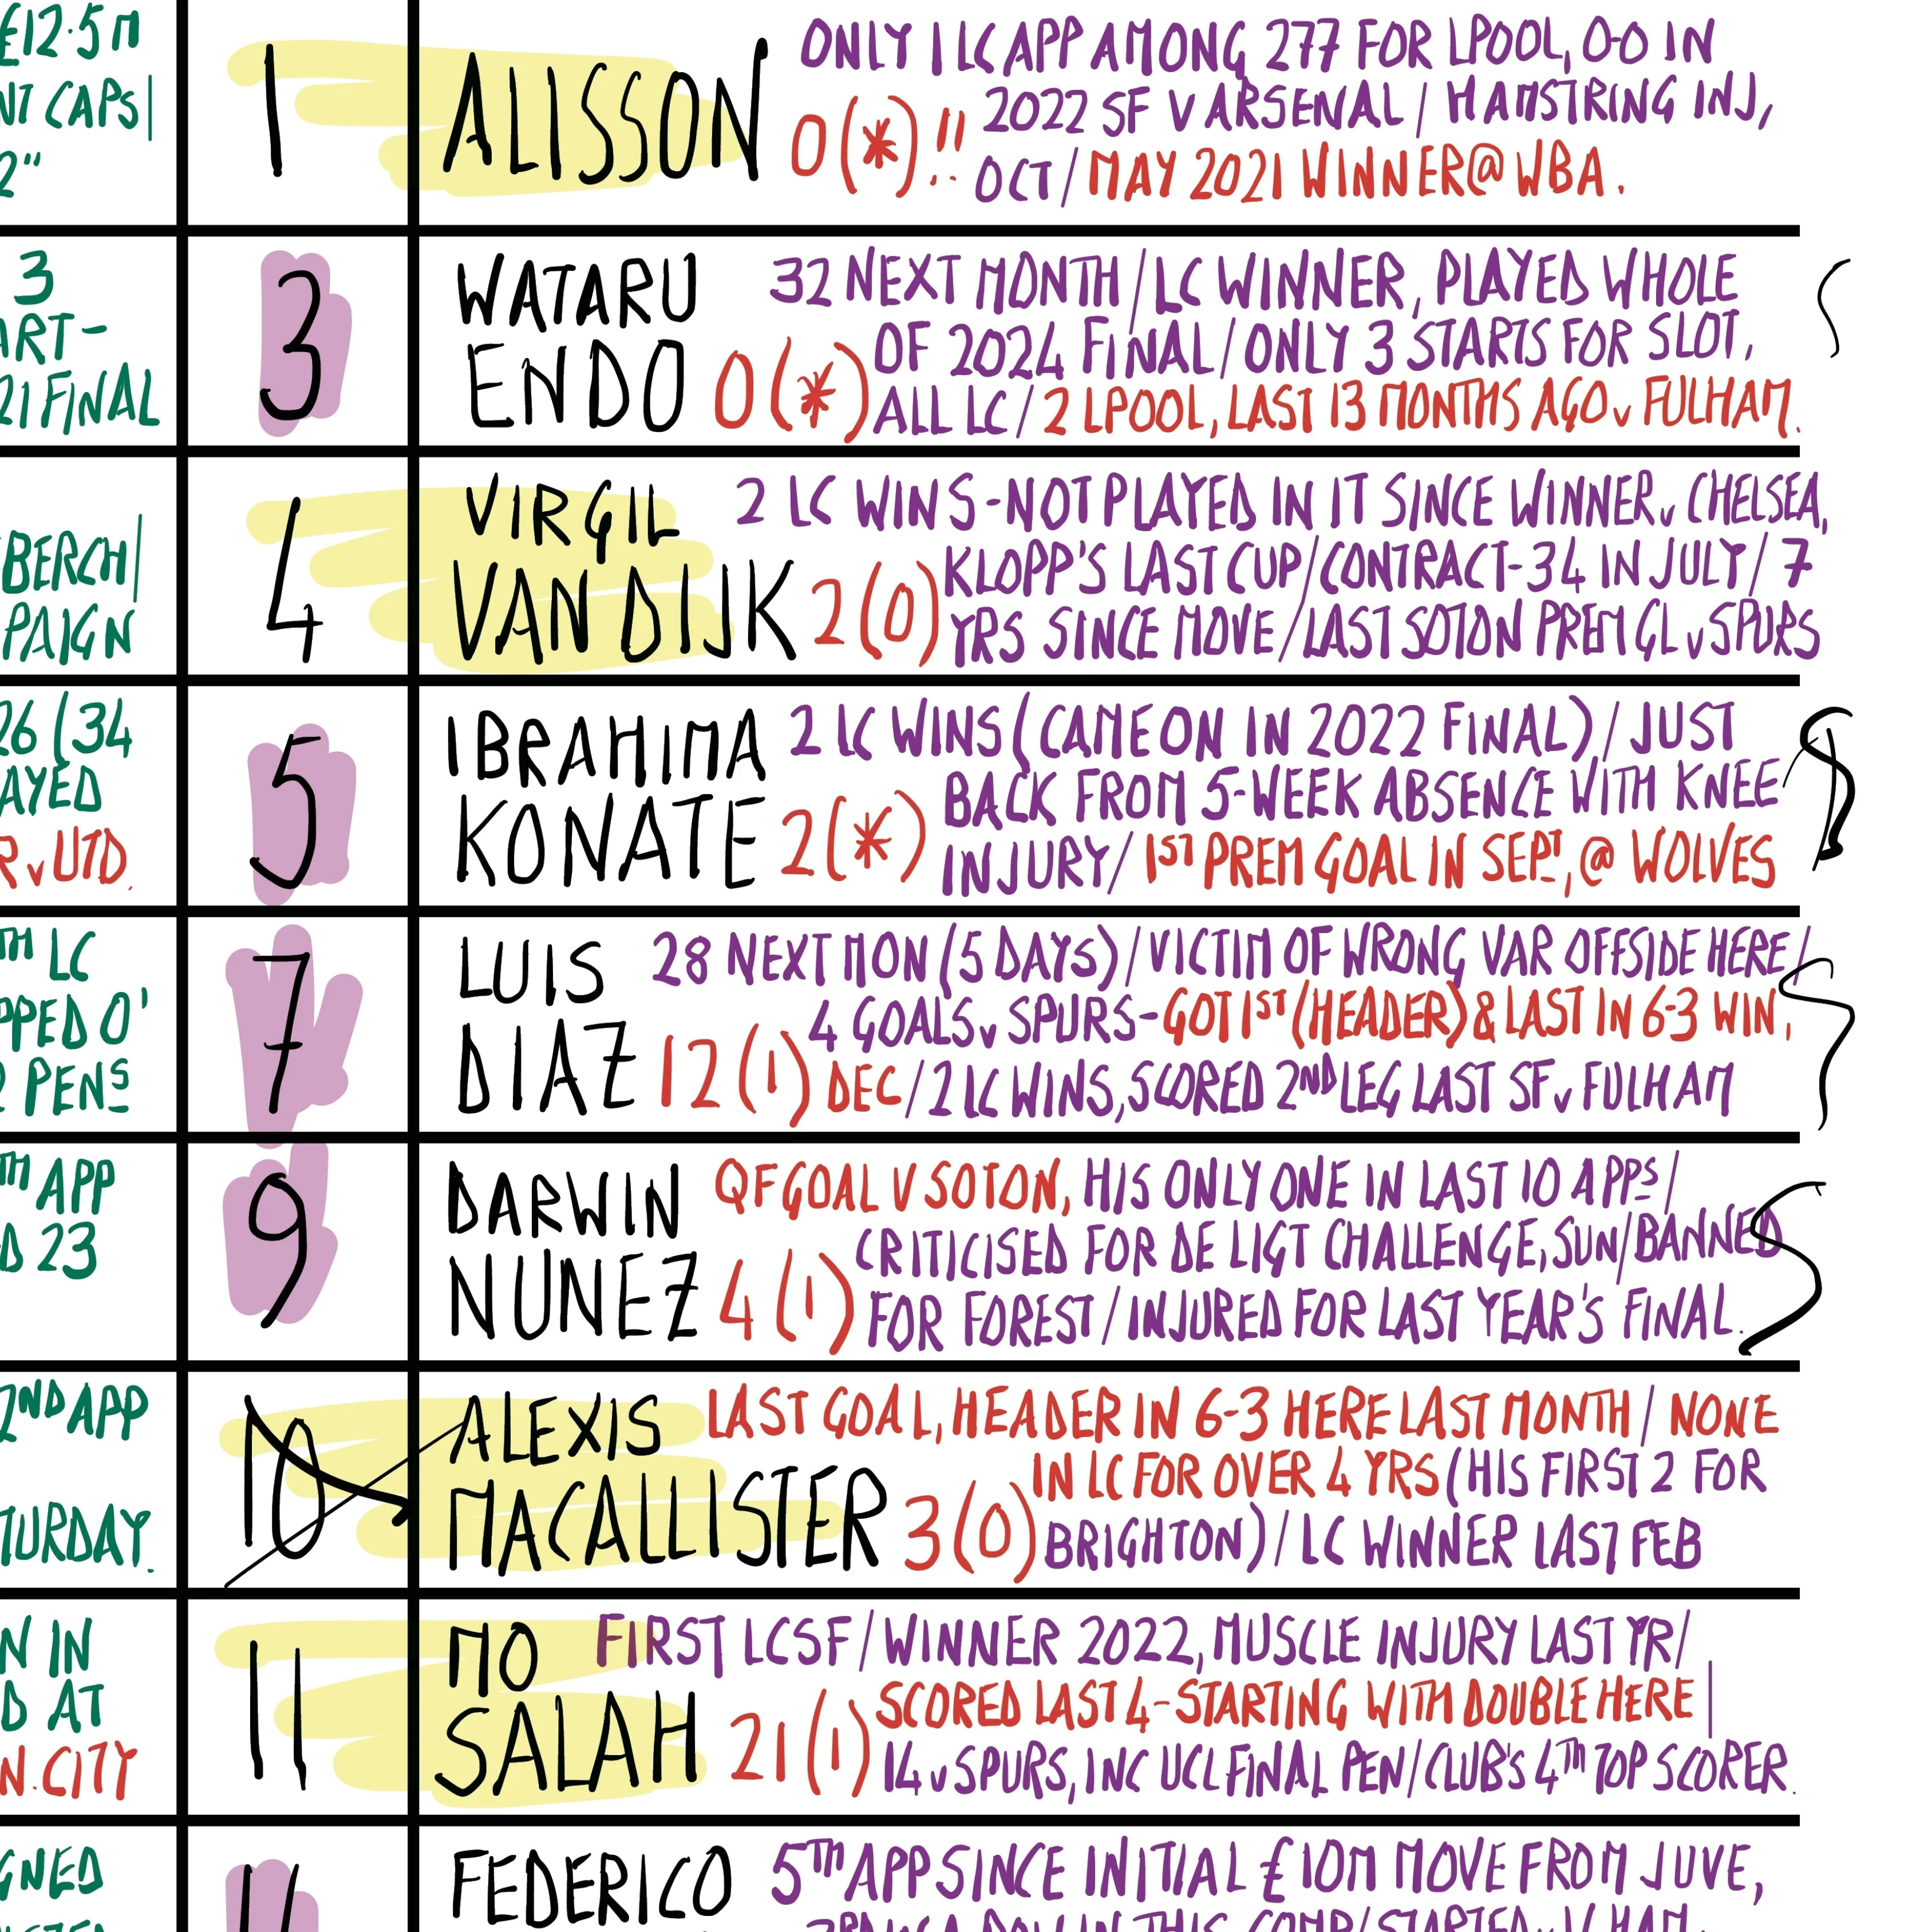 £12.5M
NT CAPS|
2"
1
ALISSON
0(*)!!
ONLY 1 LC APP AMONG 277 FOR LPOOL, 0-0 IN
2022 SF V ARSENAL / HAMSTRING INJ,
OCT / MAY 2021 WINNER @ WBA.
3
ART-
21 FINAL
3
WATARU
ENDO 0(*)
32 NEXT MONTH / LC WINNER, PLAYED WHOLE
OF 2024 FINAL / ONLY 3 STARTS FOR SLOT,
ALL LC / 2 LPOOL, LAST 13 MONTHS AGO v FULHAM.
BERCH|
PAIGN
4
VIRGIL
VAN DIJK 2(0)
2 LC WINS - NOT PLAYED IN IT SINCE WINNER v CHELSEA,
KLOPP'S LAST CUP / CONTRACT - 34 IN JULY / 7
YRS SINCE MOVE / LAST SOTON PREM GL v SPURS
26 (34
AYED
R v UTD.
5
IBRAHIMA
KONATE 2(*)
2 LC WINS (CAME ON IN 2022 FINAL) / JUST
BACK FROM 5-WEEK ABSENCE WITH KNEE
INJURY / 1ST PREM GOAL IN SEPT, @ WOLVES
TH LC
PPED O'
2 PENS
7
LUIS
DIAZ 12(1)
28 NEXT MON (5 DAYS) / VICTIM OF WRONG VAR OFFSIDE HERE /
4 GOALS v SPURS - GOT 1ST (HEADER) & LAST IN 6-3 WIN,
DEC / 2 LC WINS, SCORED 2ND LEG LAST SF v FULHAM
TH APP
D 23
9
DARWIN
NUNEZ 4(1)
QF GOAL V SOTON, HIS ONLY ONE IN LAST 10 APPS /
CRITICISED FOR DE LIGT CHALLENGE, SUN / BANNED
FOR FOREST / INJURED FOR LAST YEAR'S FINAL.
2ND APP
TURDAY.
10
ALEXIS
MACALLISTER 3(0)
LAST GOAL, HEADER IN 6-3 HERE LAST MONTH / NONE
IN LC FOR OVER 4 YRS (HIS FIRST 2 FOR
BRIGHTON) / LC WINNER LAST FEB
N IN
D AT
N. CITY
11
MO
SALAH 21(1)
FIRST LC SF / WINNER 2022, MUSCLE INJURY LAST YR /
SCORED LAST 4 - STARTING WITH DOUBLE HERE |
14 v SPURS, INC UCL FINAL PEN / CLUB'S 4TH TOP SCORER.
GNED
FEDERICO
5TH APP SINCE INITIAL £10M MOVE FROM JUVE,
IN THIS COMP / STARTED v W HAM,